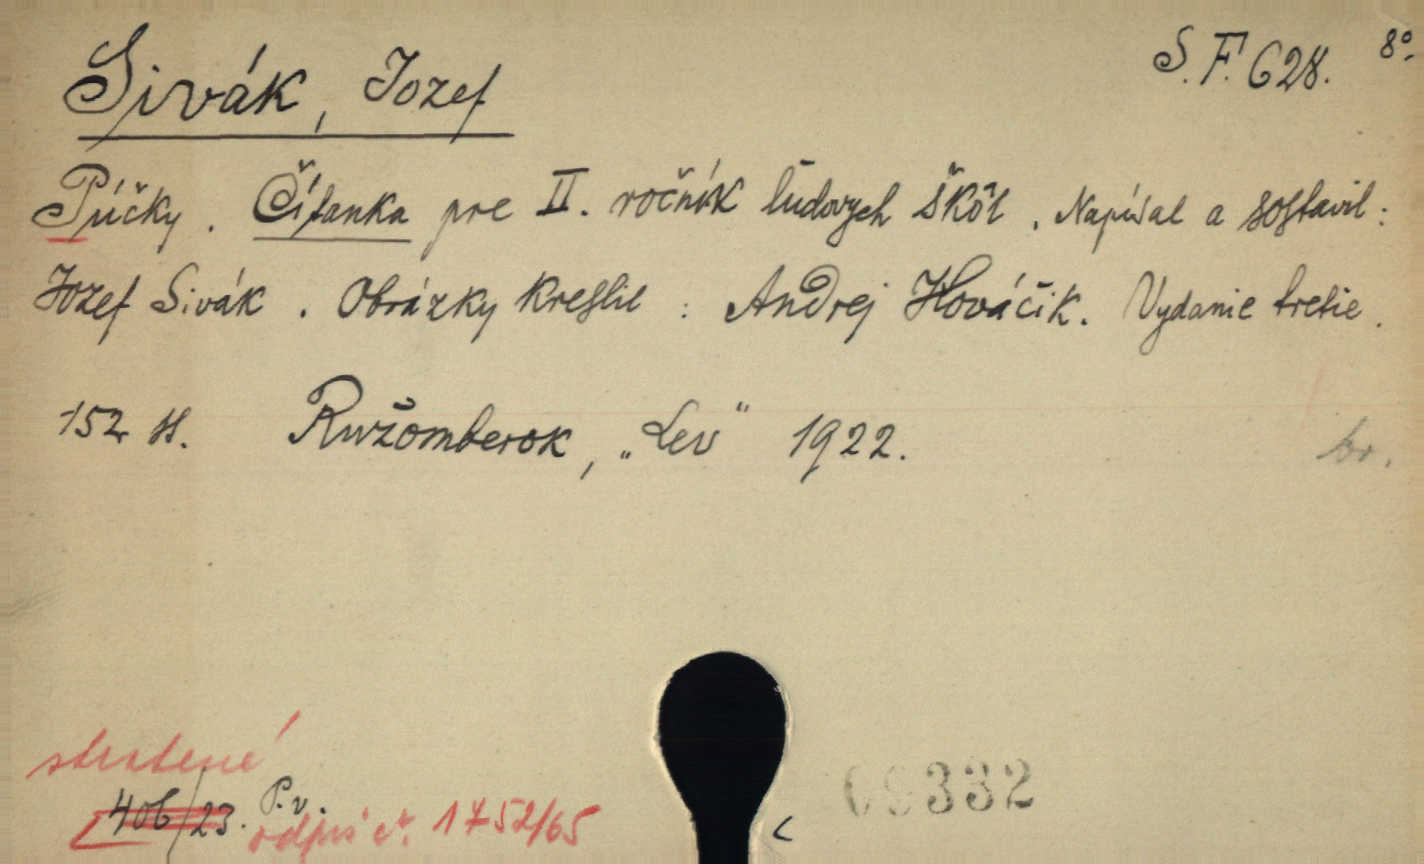 Sivák, Jozef
S. F. 628. 8°.
Púčky. Čítanka pre II. ročník ľudových škôl. Napísal a sostavil:
Jozef Sivák. Obrázky kreslil: Andrej Kováčik. Vydanie tretie.
152 s. Ružomberok, „Lev" 1922.
br.
stratené
406/23. P. v.
odpis č. 1752/65
09332